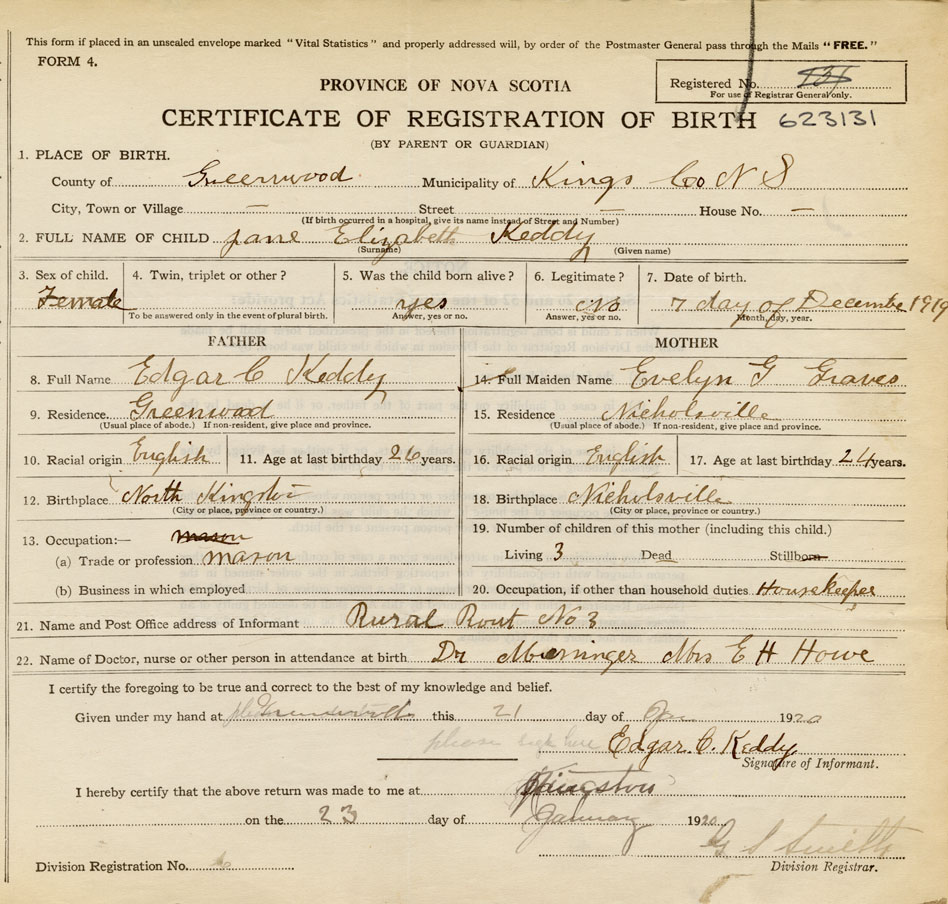 This form if placed in an unsealed envelope marked "Vital Statistics" and properly addressed will, by order of the Postmaster General pass through the Mails "FREE."
FORM 4.
PROVINCE OF NOVA SCOTIA
Registered No.
For use of Registrar General only.
CERTIFICATE OF REGISTRATION OF BIRTH 623131
(BY PARENT OR GUARDIAN)
1. PLACE OF BIRTH.
County of Greenwood Municipality of Kings Co N S
City, Town or Village — Street — House No. —
(If birth occurred in a hospital, give its name instead of Street and Number)
2. FULL NAME OF CHILD Jane Elizabeth Keddy
(Surname) (Given name)
3. Sex of child. 4. Twin, triplet or other? 5. Was the child born alive? 6. Legitimate? 7. Date of birth.
Female yes 7 day of December 1919
To be answered only in the event of plural birth. Answer, yes or no. Answer, yes or no. Month, day, year.
FATHER MOTHER
8. Full Name Edgar C Keddy 14. Full Maiden Name Evelyn G Graves
9. Residence. Greenwood 15. Residence Nicholsville
(Usual place of abode.) If non-resident, give place and province. (Usual place of abode.) If non-resident, give place and province.
10. Racial origin English 11. Age at last birthday 26 years. 16. Racial origin English 17. Age at last birthday 24 years.
12. Birthplace North Kingston 18. Birthplace Nicholsville
(City or place, province or country.) (City or place, province or country.)
19. Number of children of this mother (including this child.)
13. Occupation:— mason
Living 3 Dead Stillborn
(a) Trade or profession mason
(b) Business in which employed 20. Occupation, if other than household duties Housekeeper
21. Name and Post Office address of Informant Rural Rout No 3
22. Name of Doctor, nurse or other person in attendance at birth Dr Mrs E H Howe
I certify the foregoing to be true and correct to the best of my knowledge and belief.
Given under my hand at this 21 day of Jan 1920
please sign here Edgar. C. Keddy
Signature of Informant.
I hereby certify that the above return was made to me at Kingston
on the 23 day of January 1920
G S Smith
Division Registration No. Division Registrar.